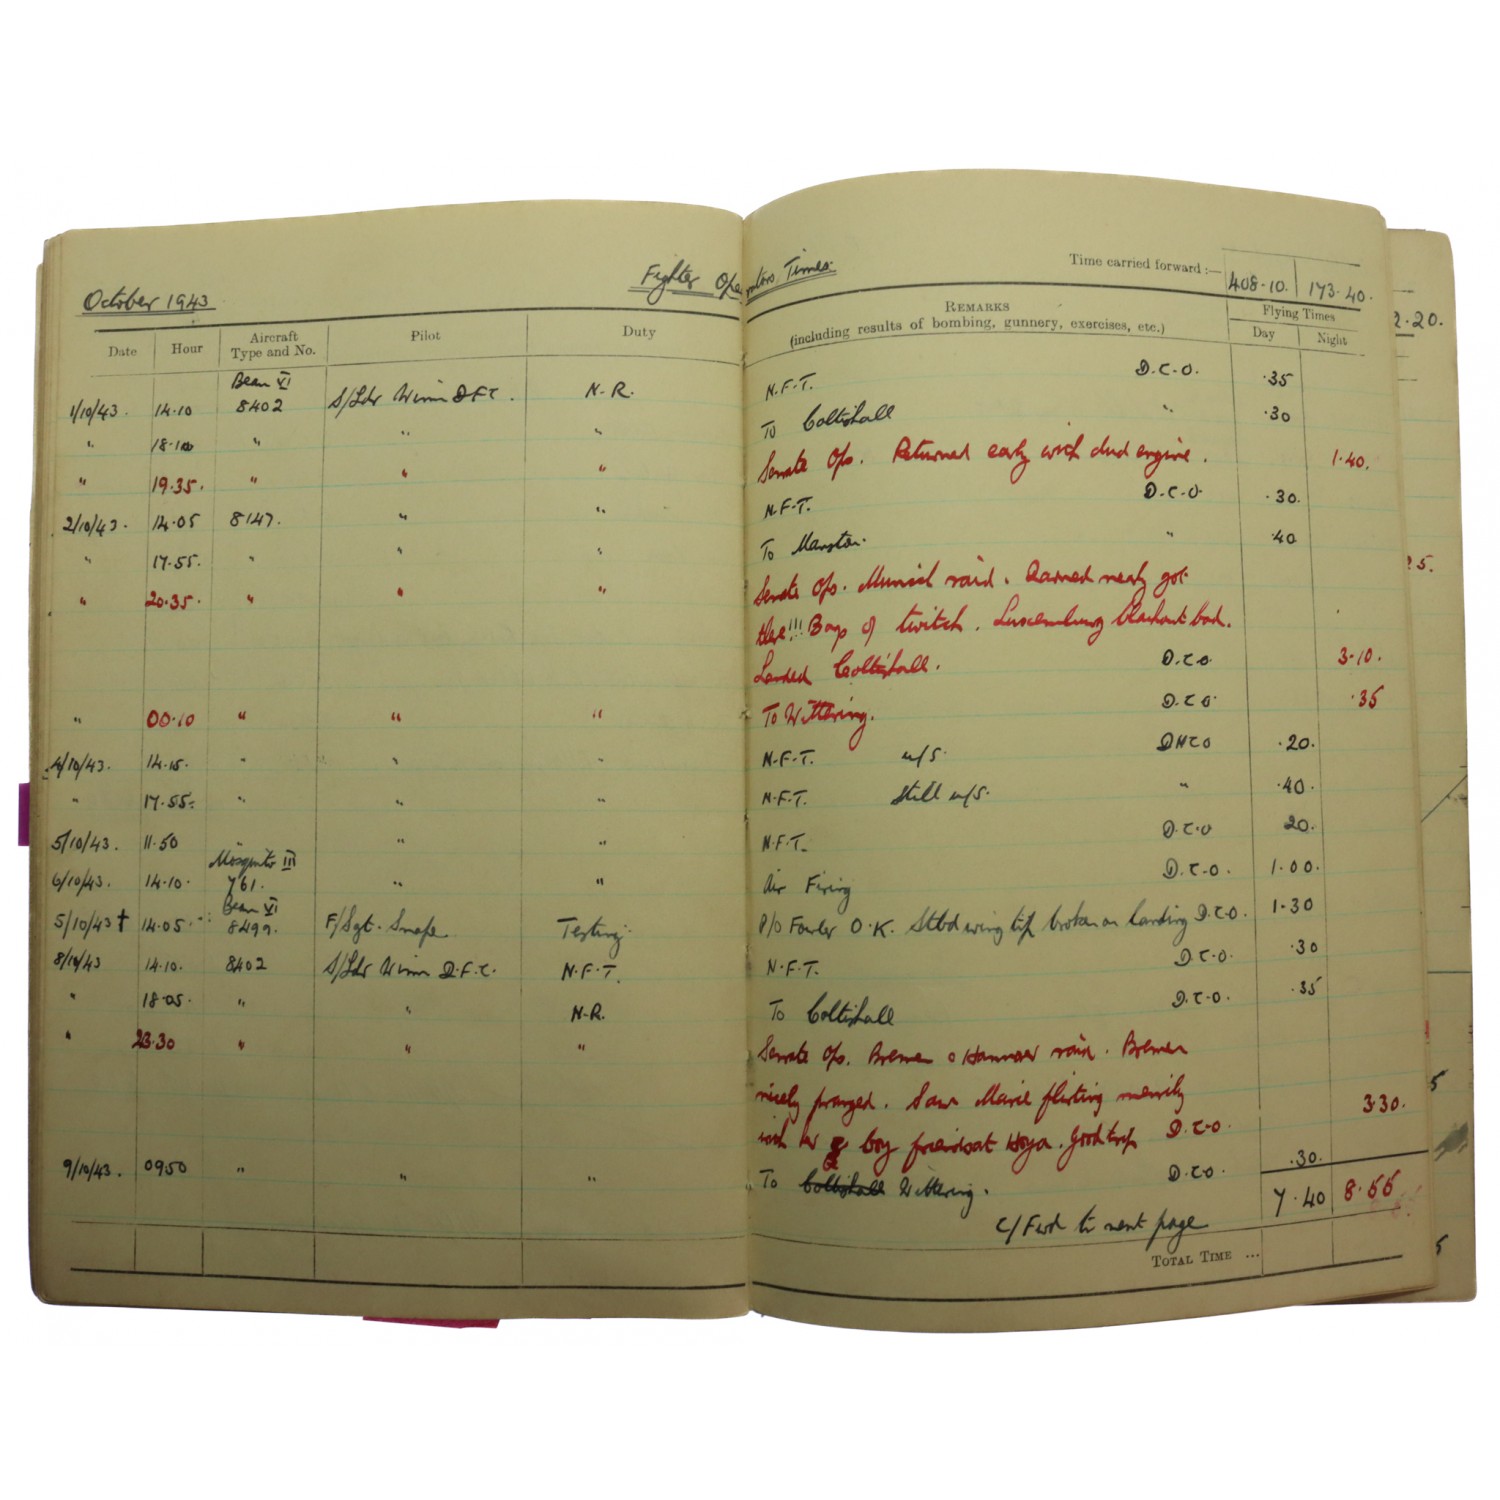 October 1943
Fighter Operators Times.
Time carried forward :— 408·10. 173·40.
Date Hour Aircraft Type and No. Pilot Duty REMARKS (including results of bombing, gunnery, exercises, etc.) Flying Times
Day Night
Beau VI
1/10/43. 14.10 8402 S/Ldr Winn D.F.C. N.R. N.F.T. D.C.O. ·35
" 18.10 " " " To Coltishall " ·30
" 19.35. " " " Serrate Ops. Returned early with dud engine. 1·40.
2/10/43. 14.05 8147. " " N.F.T. D.C.O. ·30.
" 17.55. " " " To Manston. " ·40
" 20.35. " " " Serrate Ops. Munich raid. Darned nearly got
there!!! Bags of twitch. Luxemburg blackout bad.
Landed Coltishall. D.C.O. 3·10.
" 00.10 " " " To Wittering. D.C.O. ·35
4/10/43. 14.15. " " " N.F.T. u/s. DNCO ·20.
" 17.55. " " " N.F.T. Still u/s. " ·40.
5/10/43. 11.50 " " " N.F.T. D.C.O 20.
Mosquito III
6/10/43. 14.10. 761. " " Air Firing D.C.O. 1·00.
Beau VI
5/10/43† 14.05. 8499. F/Sgt. Snape Testing. P/O Fowler O.K. Stbd wing tip broken on landing D.C.O. 1·30
8/10/43 14.10. 8402 S/Ldr Winn D.F.C. N.F.T. N.F.T. D.C.O. ·30
" 18.05. " " N.R. To Coltishall D.C.O. ·35
" 23.30 " " " Serrate Ops. Bremen & Hannover raid. Bremen
nicely pranged. Saw Marie flirting merrily
with her boy friends at Hoya. Good trip D.C.O. 3·30.
9/10/43. 0950 " " " To Coltishall Wittering. D.C.O. ·30.
7·40 8·55
C/Fwd to next page
TOTAL TIME ...
2·20.